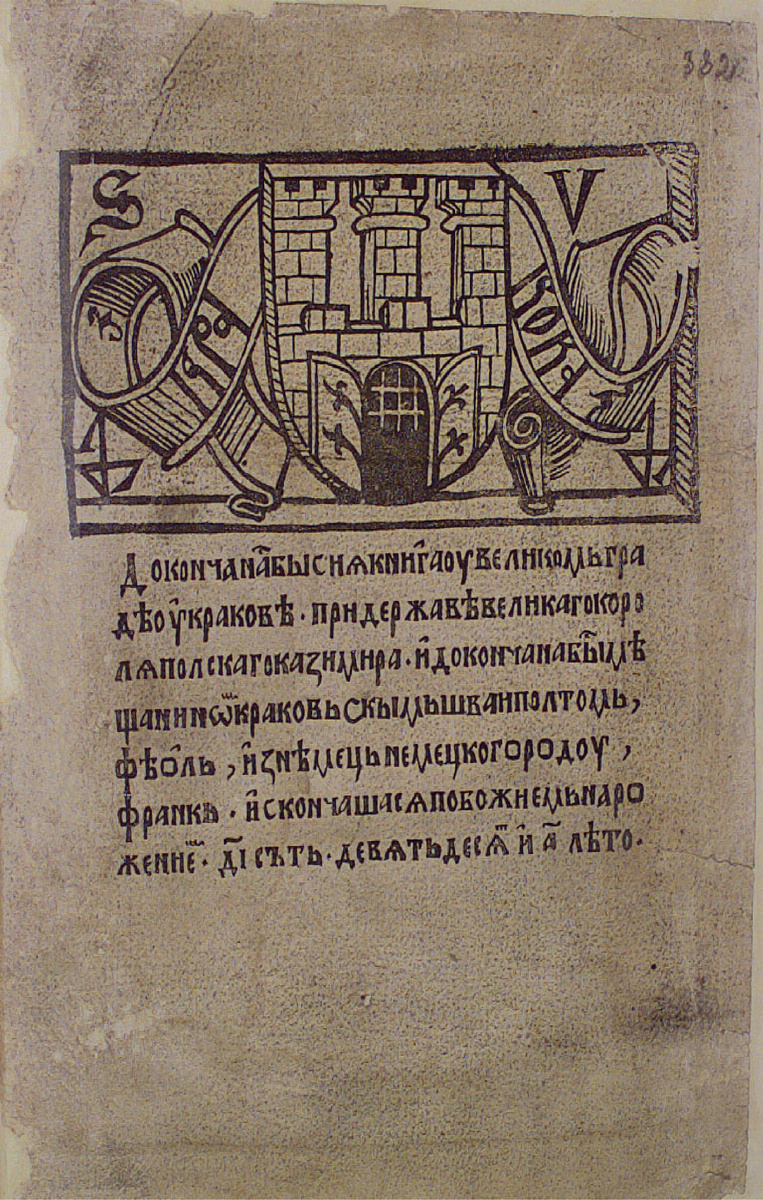 382
S V
Докончана бы сиѧ книга оу великомь гра
дѣ оу краковѣ · при державѣ великаго коро
лѧ полскаго казимира · и докончана бы мѣ
щанином краковьскымь шваиполтомь,
фѣоль, из нѣмець немецкого родоу,
франкь · и скончашасѧ по божнемь наро
жением · д҃і сътъ · девѧтьдесѧт и а҃ лѣто ·